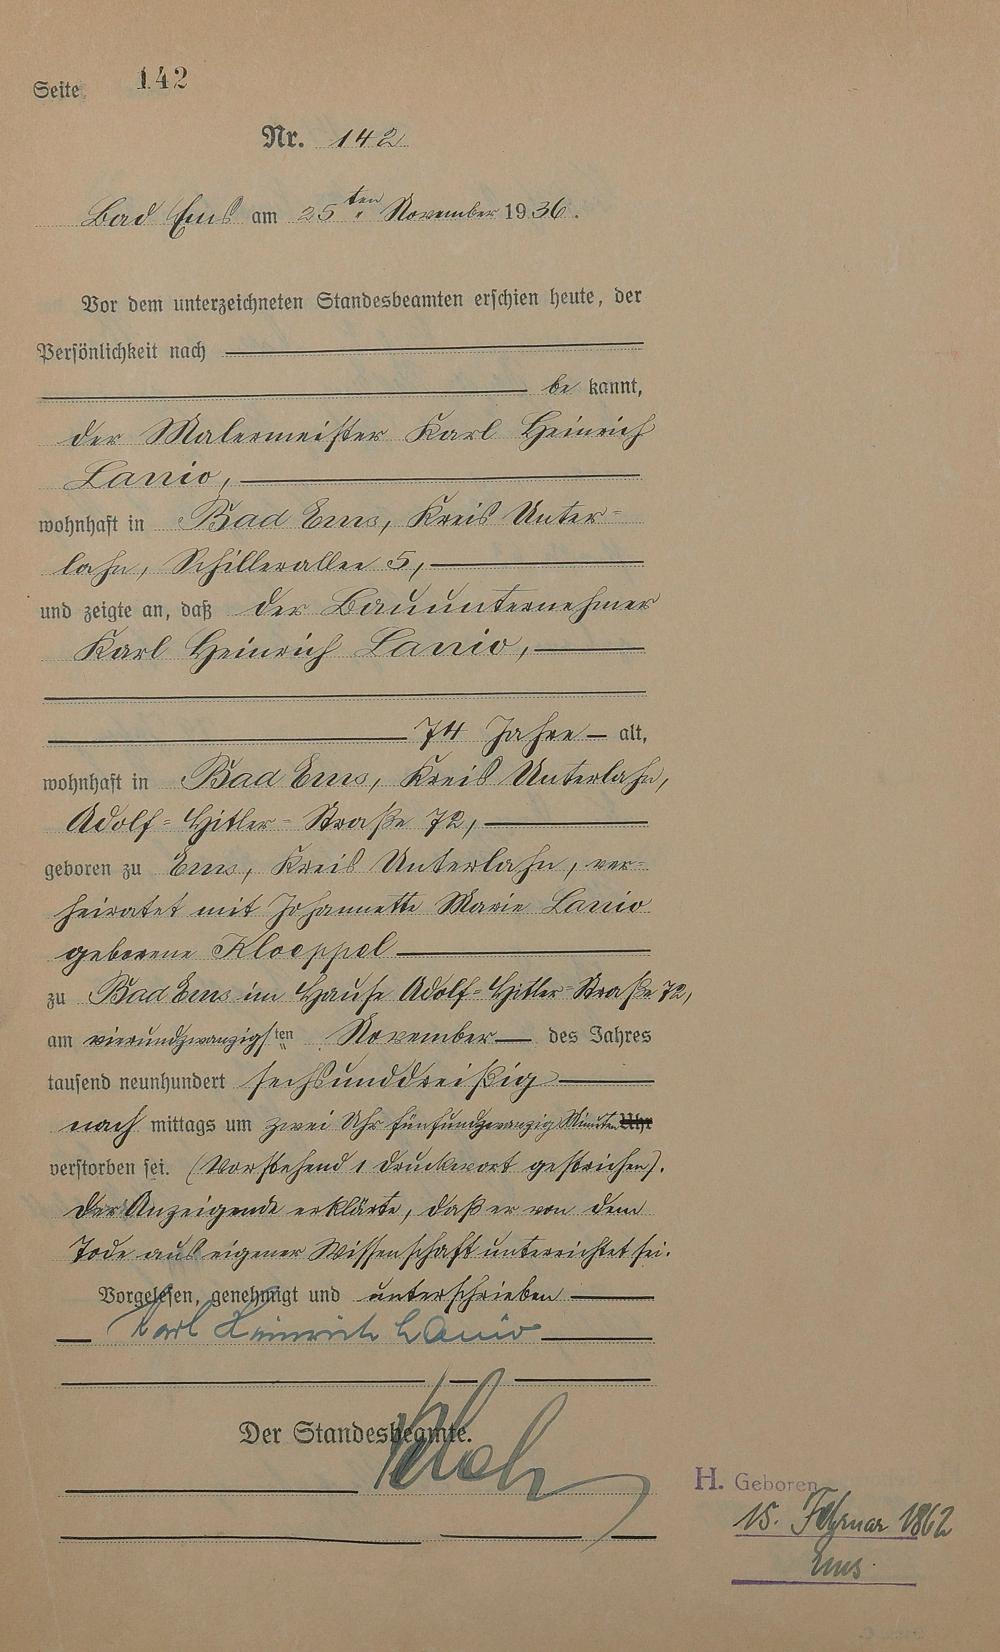 Seite 142
Nr. 142
Bad Ems am 25ten November 1936.
Vor dem unterzeichneten Standesbeamten erschien heute, der
Persönlichkeit nach
be kannt,
der Malermeister Karl Heinrich
Lanio,
wohnhaft in Bad Ems, Kreis Unter-
lahn, Schillerallee 5,
und zeigte an, daß der Bauunternehmer
Karl Heinrich Lanio,
74 Jahre alt,
wohnhaft in Bad Ems, Kreis Unterlahn,
Adolf-Hitler-Straße 72,
geboren zu Ems, Kreis Unterlahn, ver-
heiratet mit Johannette Marie Lanio
geborene Kloeppel
zu Bad Ems im Hause Adolf-Hitler-Straße 72,
am vierundzwanzigsten November des Jahres
tausend neunhundert sechsunddreißig
nach mittags um zwei Uhr fünfundzwanzig Minuten Uhr
verstorben sei. (Vorstehend 1 Druckwort gestrichen).
Der Anzeigende erklärte, daß er von dem
Tode aus eigener Wissenschaft unterrichtet sei.
Vorgelesen, genehmigt und unterschrieben
Karl Heinrich Lanio
Der Standesbeamte.
H. Geboren
15. Februar 1862
Ems.